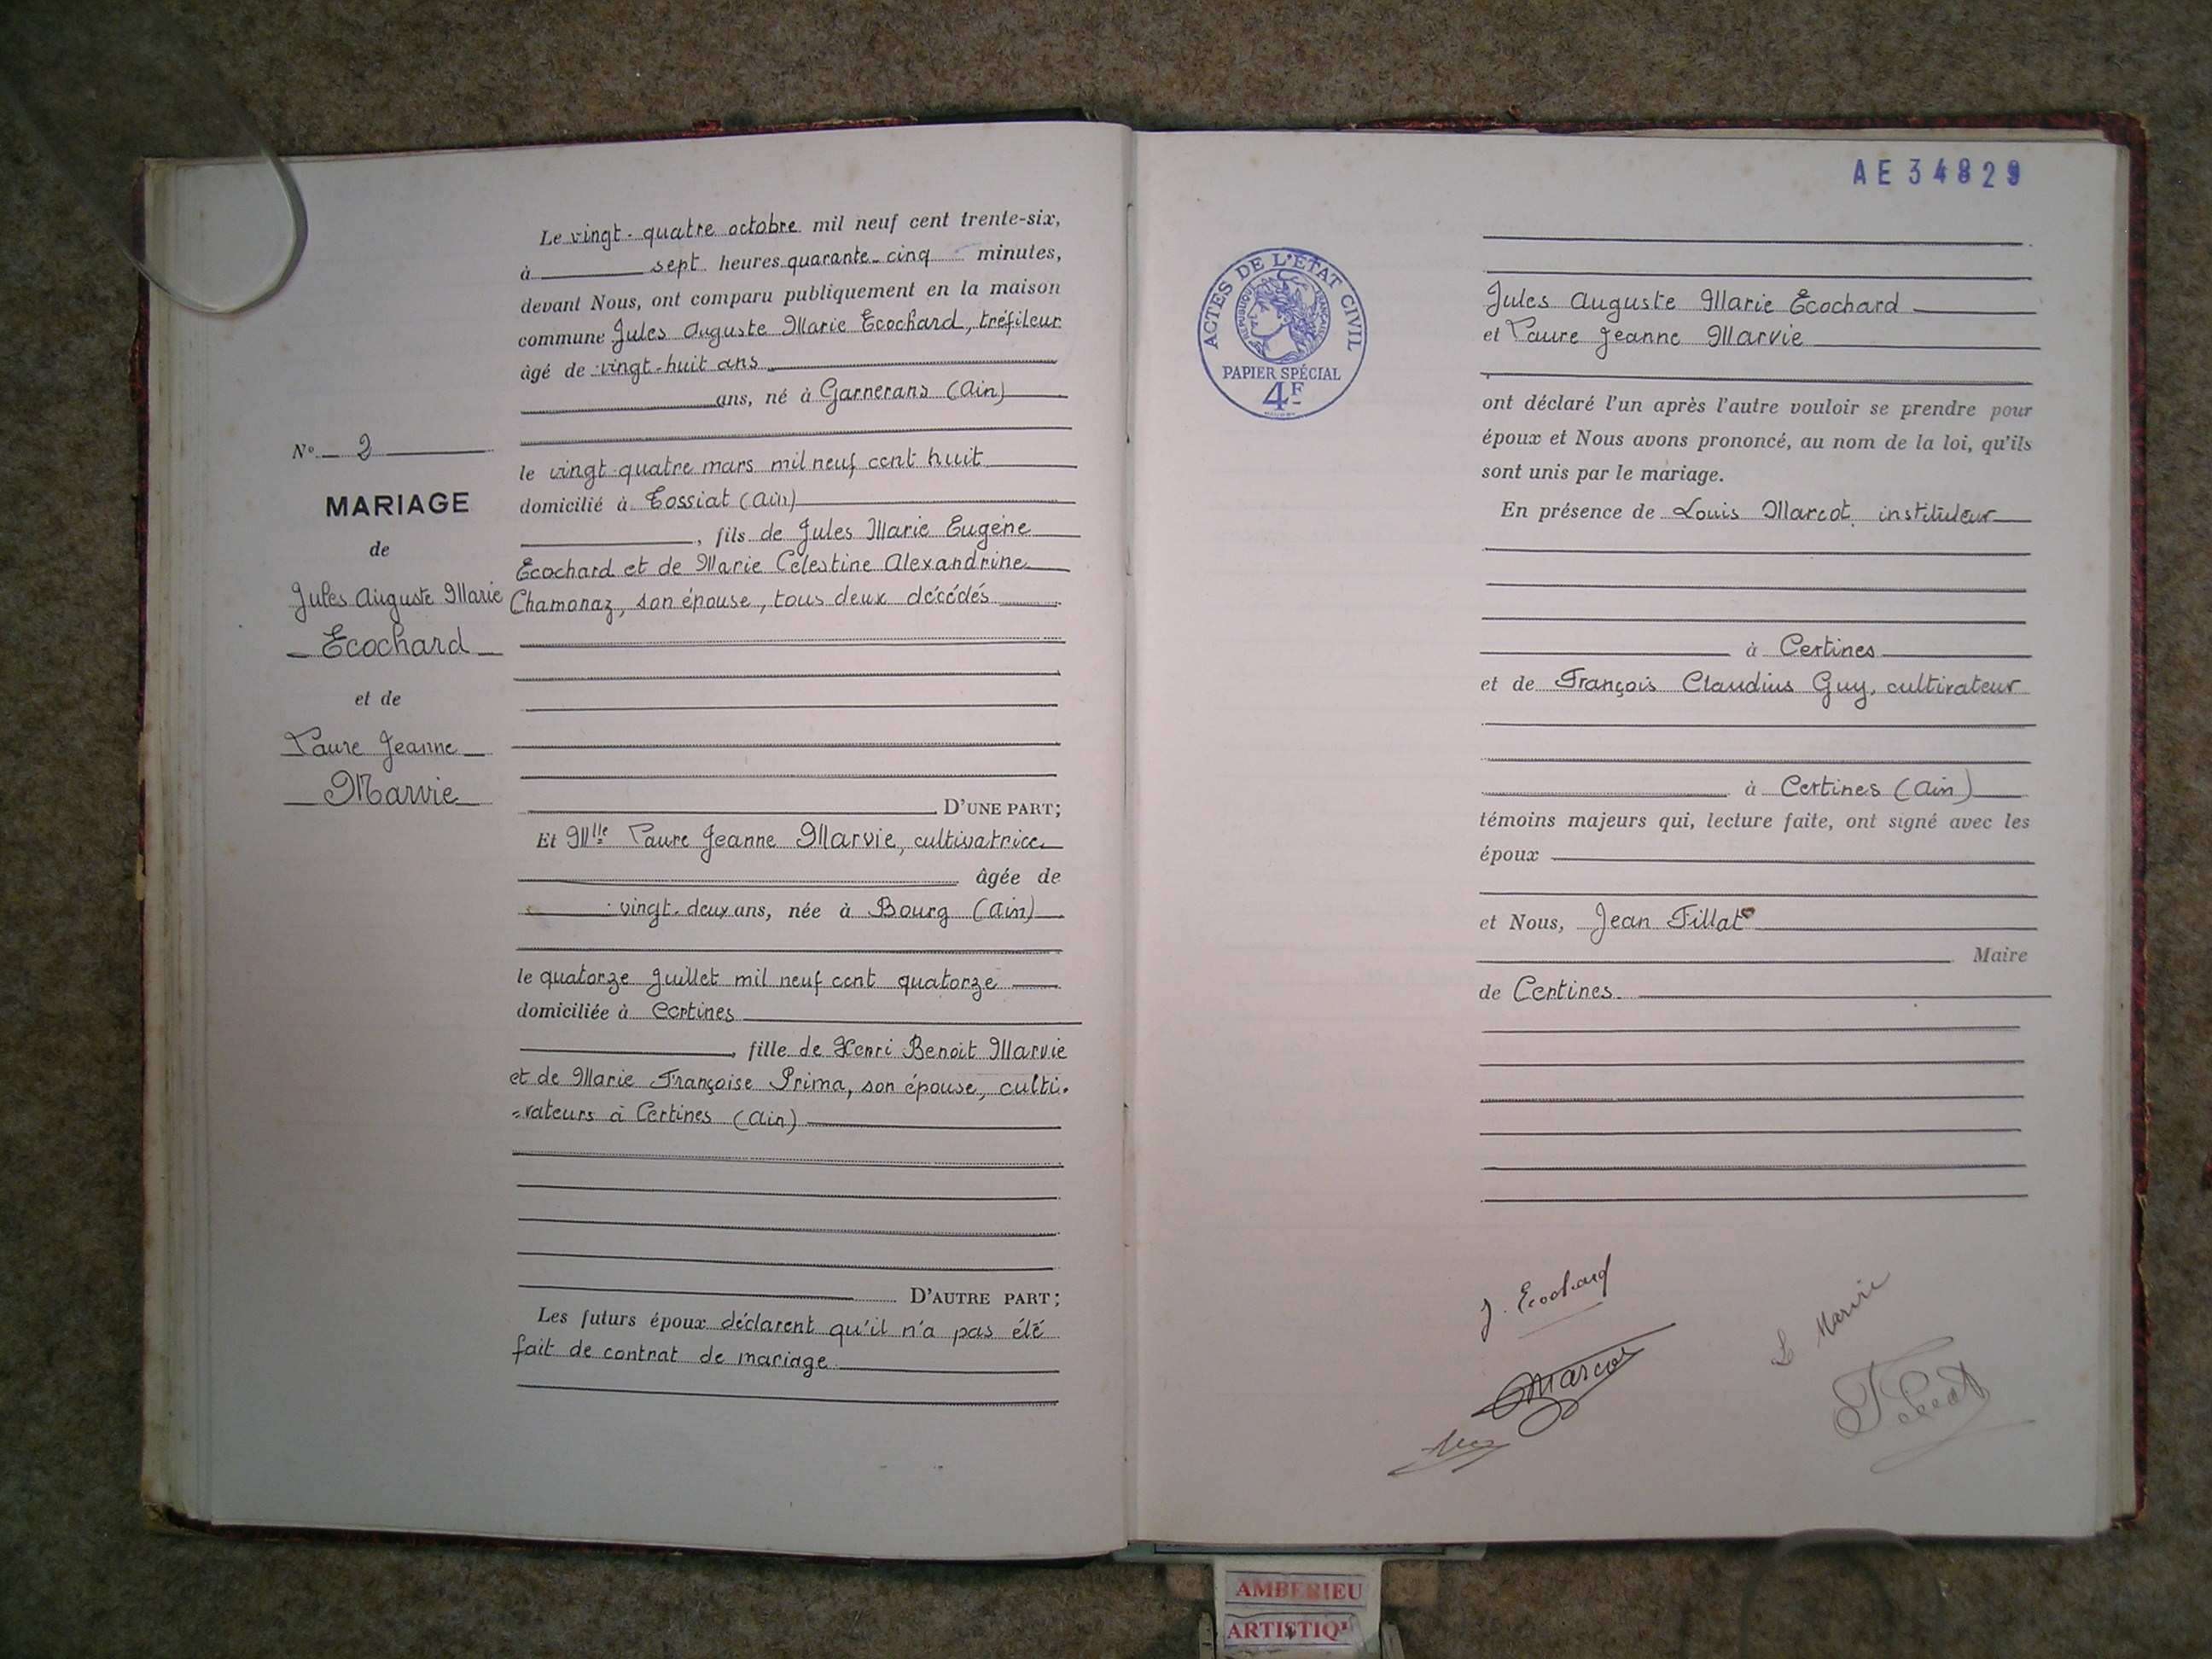 Le vingt-quatre octobre mil neuf cent trente-six,
à sept heures quarante-cinq minutes,
devant Nous, ont comparu publiquement en la maison
commune Jules Auguste Marie Ecochard, tréfileur
âgé de vingt-huit ans
ans, né à Garnerans (Ain)
le vingt-quatre mars mil neuf cent huit
domicilié à Tossiat (Ain)
, fils de Jules Marie Eugène
Ecochard et de Marie Célestine Alexandrine
Chamonaz, son épouse, tous deux décédés
D'UNE PART;
Et Mlle Laure Jeanne Marvie, cultivatrice
âgée de
vingt-deux ans, née à Bourg (Ain)
le quatorze Juillet mil neuf cent quatorze
domiciliée à Certines
, fille de Henri Benoit Marvie
et de Marie Françoise Prima, son épouse, culti-
=vateurs à Certines (Ain)
D'AUTRE PART;
Les futurs époux déclarent qu'il n'a pas été
fait de contrat de mariage
N° 2
MARIAGE
de
Jules Auguste Marie
Ecochard
et de
Laure Jeanne
Marvie
AE34829
ACTES DE L'ÉTAT CIVIL
RÉPUBLIQUE FRANÇAISE
PAPIER SPÉCIAL
4F
Jules Auguste Marie Ecochard
et Laure Jeanne Marvie
ont déclaré l'un après l'autre vouloir se prendre pour
époux et Nous avons prononcé, au nom de la loi, qu'ils
sont unis par le mariage.
En présence de Louis Marcot, instituteur
à Certines
et de François Claudius Guy, cultivateur
à Certines (Ain)
témoins majeurs qui, lecture faite, ont signé avec les
époux
et Nous, Jean Tillat
Maire
de Certines.
J. Ecochard
L Marvie
Marcot
AMBERIEU
ARTISTIQ